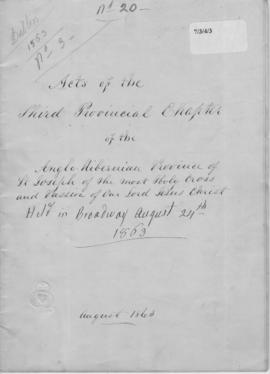 No 20-
7/3/4/3
Dublin
1863
No 3-
Acts of the
Third Provincial Chapter
of the
Anglo Hibernian Province of
St Joseph of the most Holy Cross
and Passion of Our Lord Jesus Christ
in Broadway August 24th
1863
August 1863